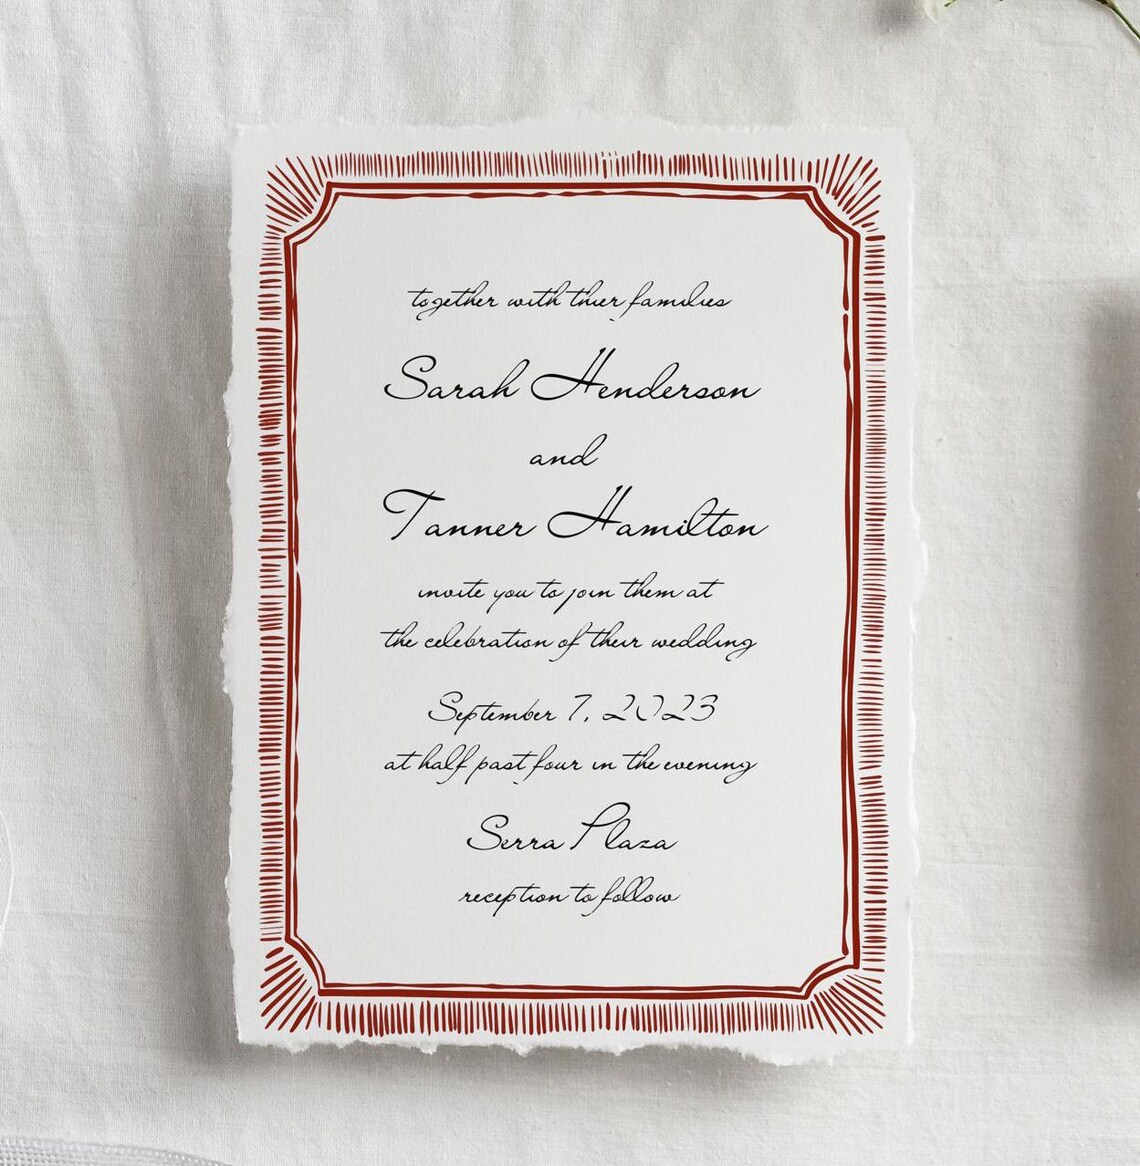 together with thier families
Sarah Henderson
and
Tanner Hamilton
invite you to join them at
the celebration of their wedding
September 7, 2023
at half past four in the evening
Serra Plaza
reception to follow